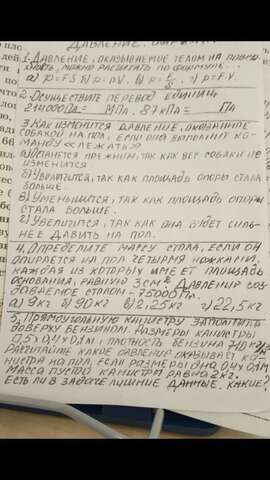 ДАВЛЕНИЕ.
1. ДАВЛЕНИЕ, ОКАЗЫВАЕМОЕ ТЕЛОМ НА
МОЖНО РАССЧИТАТЬ ПО ФОРМУЛЕ...
а) p=FS б) p=ρV в) p=F/S г) p=F·V.
2. ОСУЩЕСТВИТЕ ПЕРЕВОД ЕДИНИЦ
214000Па=____МПа. 87кПа=____Па
3. КАК ИЗМЕНИТСЯ ДАВЛЕНИЕ, ОКАЗЫВАЕМОЕ
СОБАКОЙ НА ПОЛ, ЕСЛИ ОНА ВЫПОЛНИТ КО-
МАНДУ «ЛЕЖАТЬ»
а) ОСТАНЕТСЯ ПРЕЖНИМ, ТАК КАК ВЕС СОБАКИ НЕ
ИЗМЕНИТСЯ
б) УВЕЛИЧИТСЯ, ТАК КАК ПЛОЩАДЬ ОПОРЫ СТАЛА
БОЛЬШЕ
в) УМЕНЬШИТСЯ, ТАК КАК ПЛОЩАДЬ ОПОРЫ
СТАЛА БОЛЬШЕ.
г) УВЕЛИЧИТСЯ, ТАК КАК ОНА БУДЕТ СИЛЬ-
НЕЕ ДАВИТЬ НА ПОЛ.
4. ОПРЕДЕЛИТЕ МАССУ СТОЛА, ЕСЛИ ОН
ОПИРАЕТСЯ НА ПОЛ ЧЕТЫРМЯ НОЖКАМИ,
КАЖДАЯ ИЗ КОТОРЫХ ИМЕЕТ ПЛОЩАДЬ
ОСНОВАНИЯ, РАВНУЮ 3см² ДАВЛЕНИЕ СОЗ-
ДАВАЕМОЕ СТОЛОМ - 75000Па.
а) 9кг б) 90кг в) 2,25кг г) 22,5кг
5. ПРЯМОУГОЛЬНУЮ КАНИСТРУ ЗАПОЛНИЛИ
ДОВЕРХУ БЕНЗИНОМ. РАЗМЕРЫ КАНИСТРЫ
0,5×0,4×0,1м, ПЛОТНОСТЬ БЕНЗИНА 710
РАССЧИТАЙТЕ КАКОЕ ДАВЛЕНИЕ ОКАЗЫВАЕТ КА-
НИСТРА НА ПОЛ, ЕСЛИ РАЗМЕРЫ ДНА 0,4×0,1м
МАССА ПУСТОЙ КАНИСТРЫ РАВНА 2кг.
ЕСТЬ ЛИ В ЗАДАЧЕ ЛИШНИЕ ДАННЫЕ, КАКИЕ,